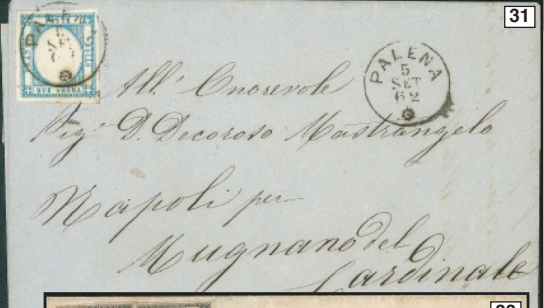 31
PALENA
5
SET
62
DUE GRANA
PALENA
5
SET
62
All' Onorevole
Sig.r D. Decoroso Mastrangelo
Napoli per
Mugnano del
Cardinale